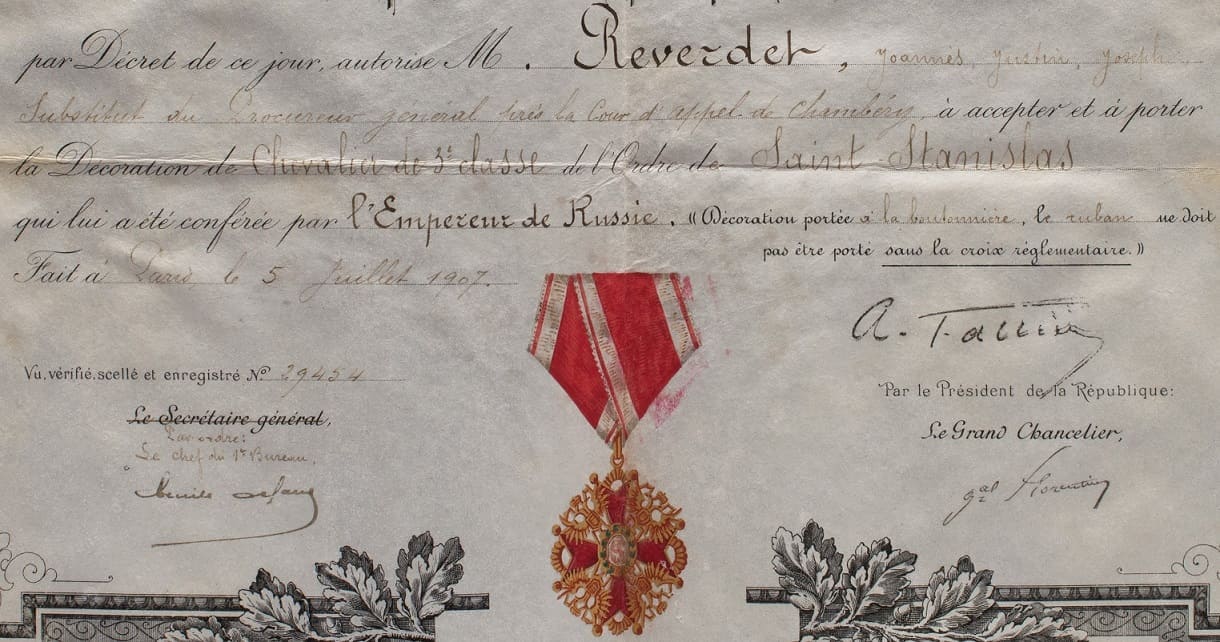 par Décret de ce jour, autorise M. Reverdet, Joannès, Justin, Joseph
Substitut du Procureur général près la Cour d'appel de Chambéry, à accepter et à porter
la Décoration de Chevalier de 3e classe de l'Ordre de Saint Stanislas
qui lui a été conférée par l'Empereur de Russie. « Décoration portée à la boutonnière, le ruban ne doit
pas être porté sans la croix réglementaire. »
Fait à Paris le 5 Juillet 1907.
A. Fallières
Vu, vérifié, scellé et enregistré N° 29454
Par le Président de la République:
Le Secrétaire général,
Le Grand Chancelier,
Par ordre:
Le chef du 1er Bureau,
gal Florentin